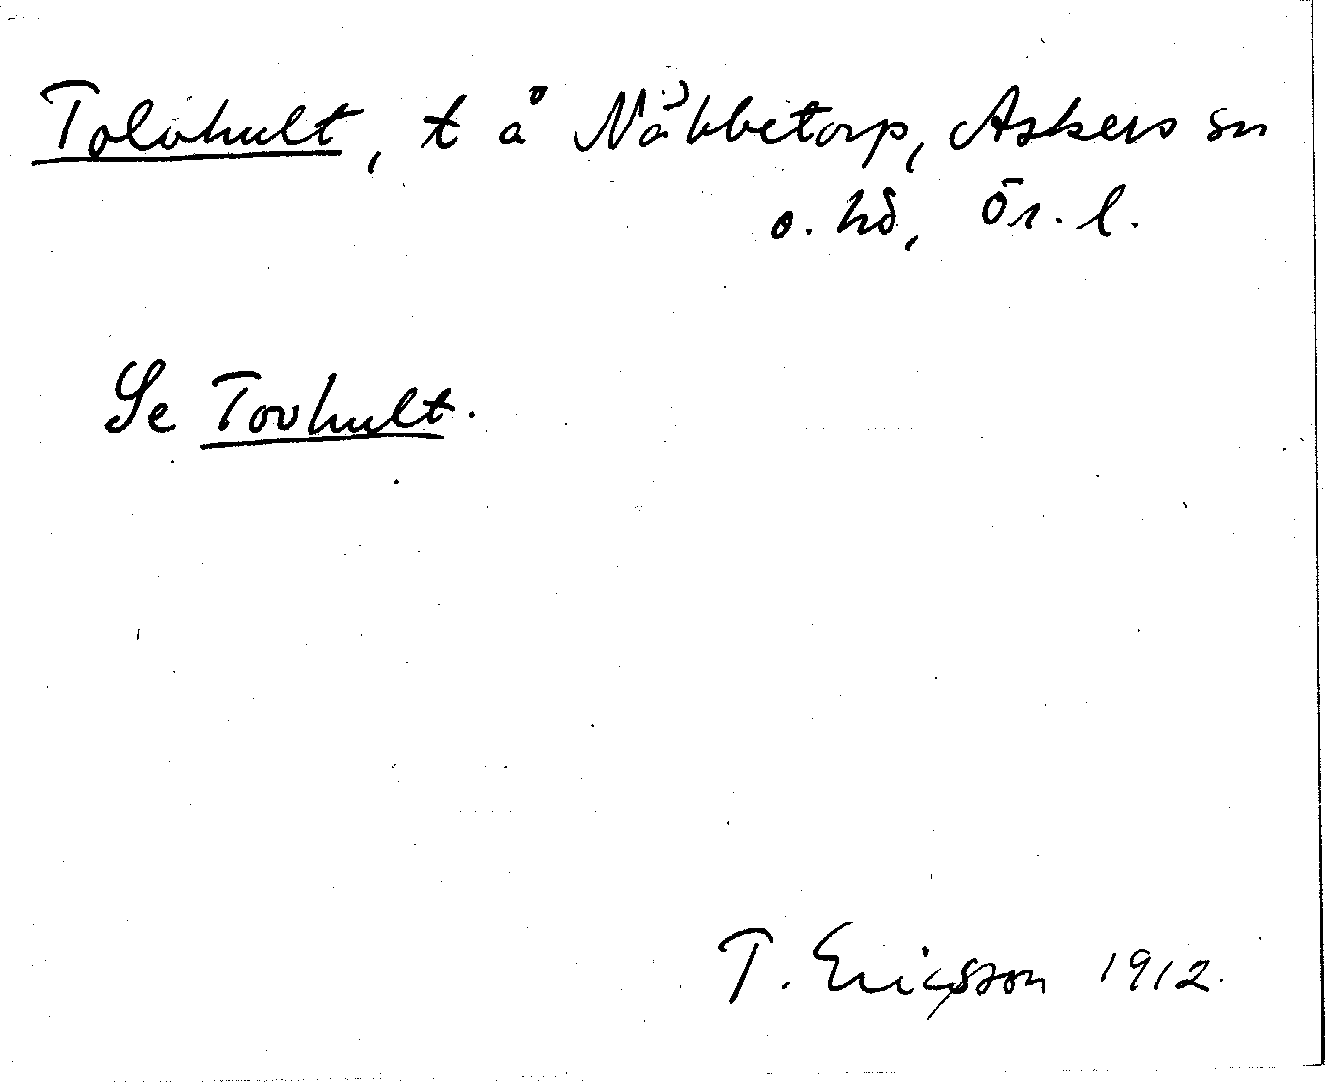 Tolvhult, t å Nåbbetorp, Askers sn
o. hd, Ör. l.
Se Tovhult.
T. Ericsson 1912.